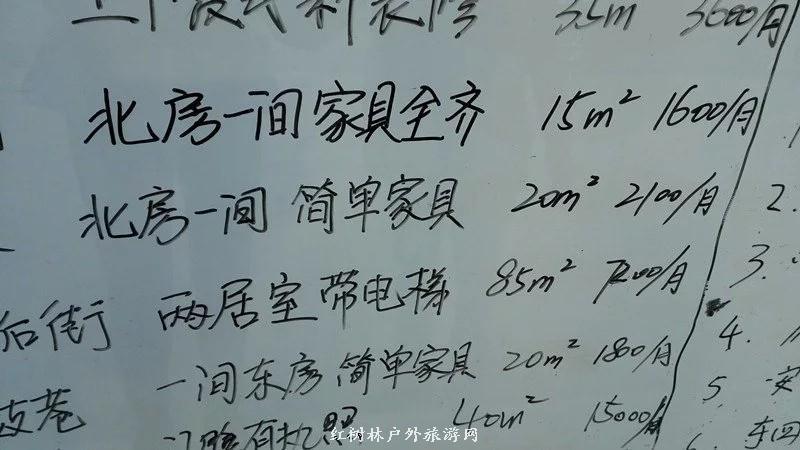 35m 3600/月
北房一间 家具全齐 15m² 1600/月
北房一间 简单家具 20m² 2100/月 2.
后街 两居室 带电梯 85m² 7200/月 3.
一间东房 简单家具 20m² 1800/月 4.
门脸有执照 40m² 15000/月 5.
东四
红树林户外旅游网